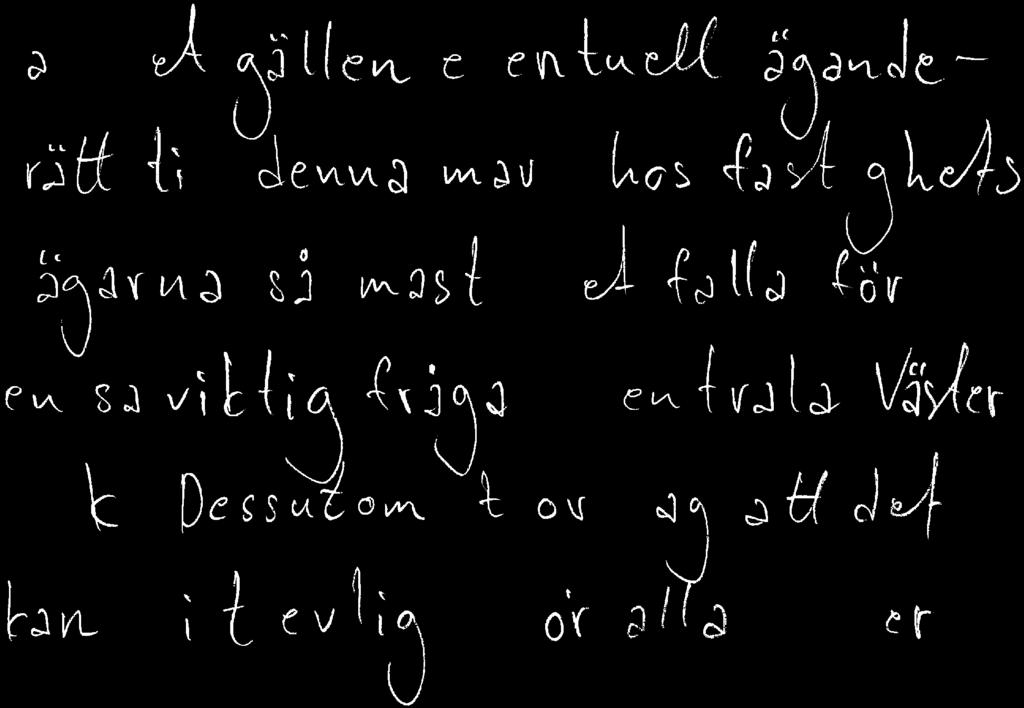 a et gällen e entuell ägande-
rätt ti denna mav hos fast ghets
ägarna så mast et falla för
en sa viktig fråga entrala Väster
k Dessutom t ov ag att det
kan i t evlig ör alla er